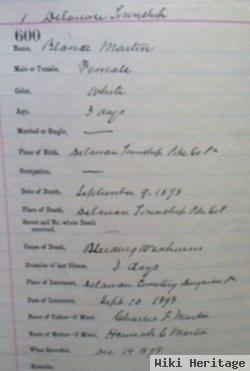 1 Delaware Township
600
Name, Blance Martin
Male or Female, Female
Color, White
Age, 3 days
Married or Single, —
Place of Birth, Delaware Township Pike Co Pa
Occupation, —
Date of Death, September 9. 1898
Place of Death, Delaware Township Pike Co P
Street and No. where Death
occurred, —
Cause of Death, Bleeding
Duration of last Illness, 3 days
Place of Interment, Delaware Cemetery
Date of Interment, Sept 10 1898
Name of Father—if Minor, Charles F Martin
Name of Mother—if Minor, Hannah C Martin
When Recorded, Dec 14 1898
Remarks
Wiki Heritage